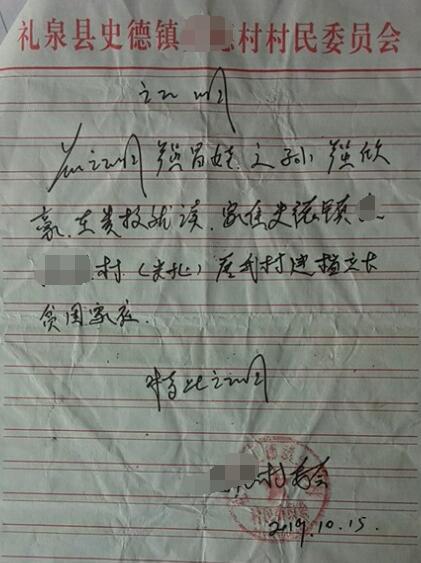 礼泉县史德镇 村村民委员会
证明
兹证明 强 之孙 强欣
豪,在贵校就读,家住史德镇
村(米北)属我村建档立卡
贫困家庭.
特此证明
村委会
2019.10.15.